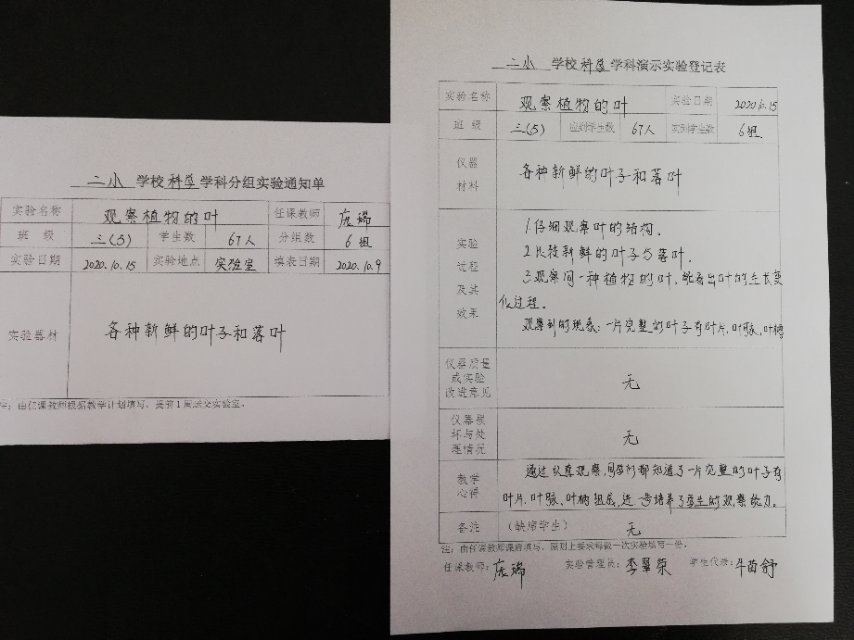 二小 学校 科学 学科分组实验通知单
实验名称 观察植物的叶 任课教师 庞瑞
班 级 三(5) 学生数 67人 分组数 6组
实验日期 2020.10.15 实验地点 实验室 填表日期 2020.10.9
实验器材 各种新鲜的叶子和落叶
注：由任课教师根据教学计划填写，提前1周送交实验室。
二小 学校 科学 学科演示实验登记表
实验名称 观察植物的叶 实验日期 2020.10.15
班 级 三(5) 应到学生数 67人 实到学生数 6组
仪器
材料
各种新鲜的叶子和落叶
实验
过程
及其
效果
1.仔细观察叶的结构.
2.比较新鲜的叶子与落叶.
3.观察同一种植物的叶,能看出叶的生长变
化过程.
观察到的现象：一片完整的叶子有叶片,叶脉,叶柄
仪器质量
或实验
改进意见
无
仪器损
坏与处
理情况
无
教学
心得
通过认真观察,同学们都知道了一片完整的叶子有
叶片.叶脉、叶柄组成,进一步培养了学生的观察能力。
备注 (缺席学生) 无
注：由任课教师课前填写，原则上要求每做一次实验填写一份。
任课教师：庞瑞 实验管理员： 学生代表：